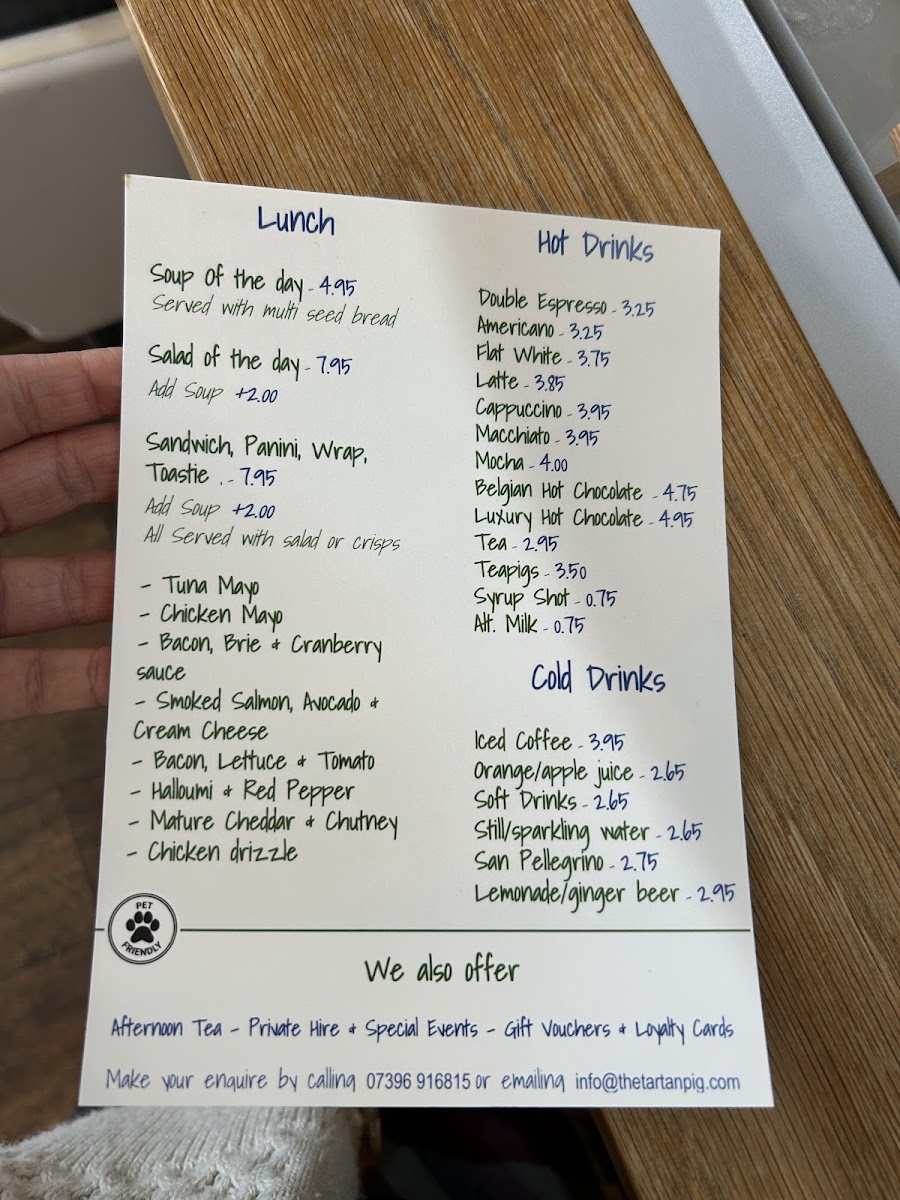 Lunch
Soup Of the day - 4.95
Served with multi seed bread
Salad of the day - 7.95
Add Soup +2.00
Sandwich, Panini, Wrap,
Toastie . - 7.95
Add Soup +2.00
All Served with salad or crisps
- Tuna Mayo
- Chicken Mayo
- Bacon, Brie & Cranberry
sauce
- Smoked Salmon, Avocado &
Cream Cheese
- Bacon, Lettuce & Tomato
- Halloumi & Red Pepper
- Mature Cheddar & Chutney
- Chicken drizzle
Hot Drinks
Double Espresso - 3.25
Americano - 3.25
Flat White - 3.75
Latte - 3.85
Cappuccino - 3.95
Macchiato - 3.95
Mocha - 4.00
Belgian Hot Chocolate - 4.75
Luxury Hot Chocolate - 4.95
Tea - 2.95
Teapigs - 3.50
Syrup Shot - 0.75
Alt. Milk - 0.75
Cold Drinks
Iced Coffee - 3.95
Orange/apple juice - 2.65
Soft Drinks - 2.65
Still/sparkling water - 2.65
San Pellegrino - 2.75
Lemonade/ginger beer - 2.95
PET
FRIENDLY
We also offer
Afternoon Tea - Private Hire & Special Events - Gift Vouchers & Loyalty Cards
Make your enquire by calling 07396 916815 or emailing info@thetartanpig.com